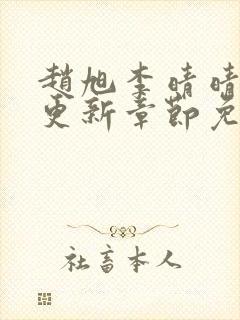 趙旭李晴晴
更新章節免
社畜本人